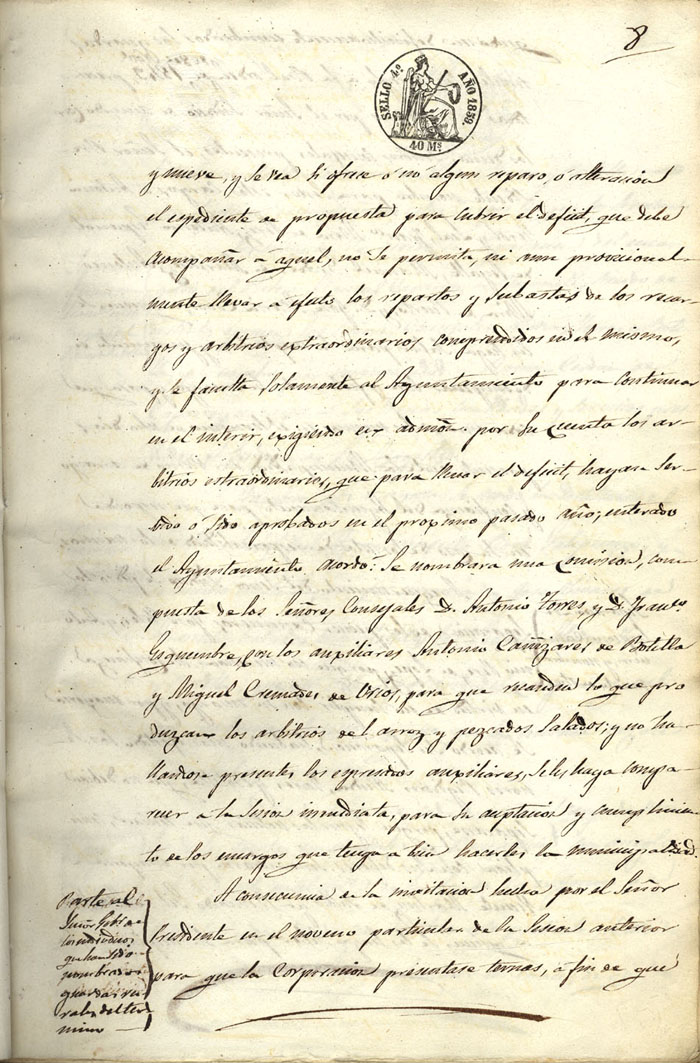 8
SELLO 4º AÑO 1859.
40 Ms.
y nueve, y se vea si ofrece ó no algun reparo, ó alteracion
el espediente de propuesta para cubrir el deficit, que debe
acompañar a aquel, no se permita, ni aun provicional-
mente llevar a efecto los repartos y subastas de los recar-
gos y arbitrios extraordinarios, comprendidos en el mismo,
y se faculta solamente al Ayuntamiento para continuar
en el interin, exigiendo en admon. por su cuenta los ar-
bitrios estraordinarios, que para llenar el deficit, hayan ser-
vido ó sido aprobados en el proximo pasado año; enterado
el Ayuntamiento acordó: Se nombrara una comision, com
puesta de los Señores Consejales D. Antonio Torres y D. Franco.
Esquembre, con los auxiliares Antonio Cañizares de Botella
y Miguel Cremades de Orios, para que recauden lo que pro
duzcan los arbitrios del arroz y pezcados salados; y no ha-
llandose presentes los espresados auxiliares, se les haga compa-
recer a la sesion inmediata, para su aceptacion y cumplimien-
to de los encargos que tenga a bien hacerles la municipalidad.
A consecuencia de la invitacion hecha por el Señor
Presidente en el noveno particular de la sesion anterior
para que la Corporacion presentase ternas, a fin de que
Parte al
Señor Gobr. de
los individuos
que han sido
nombrados
guardas ru-
rales del ter
mino